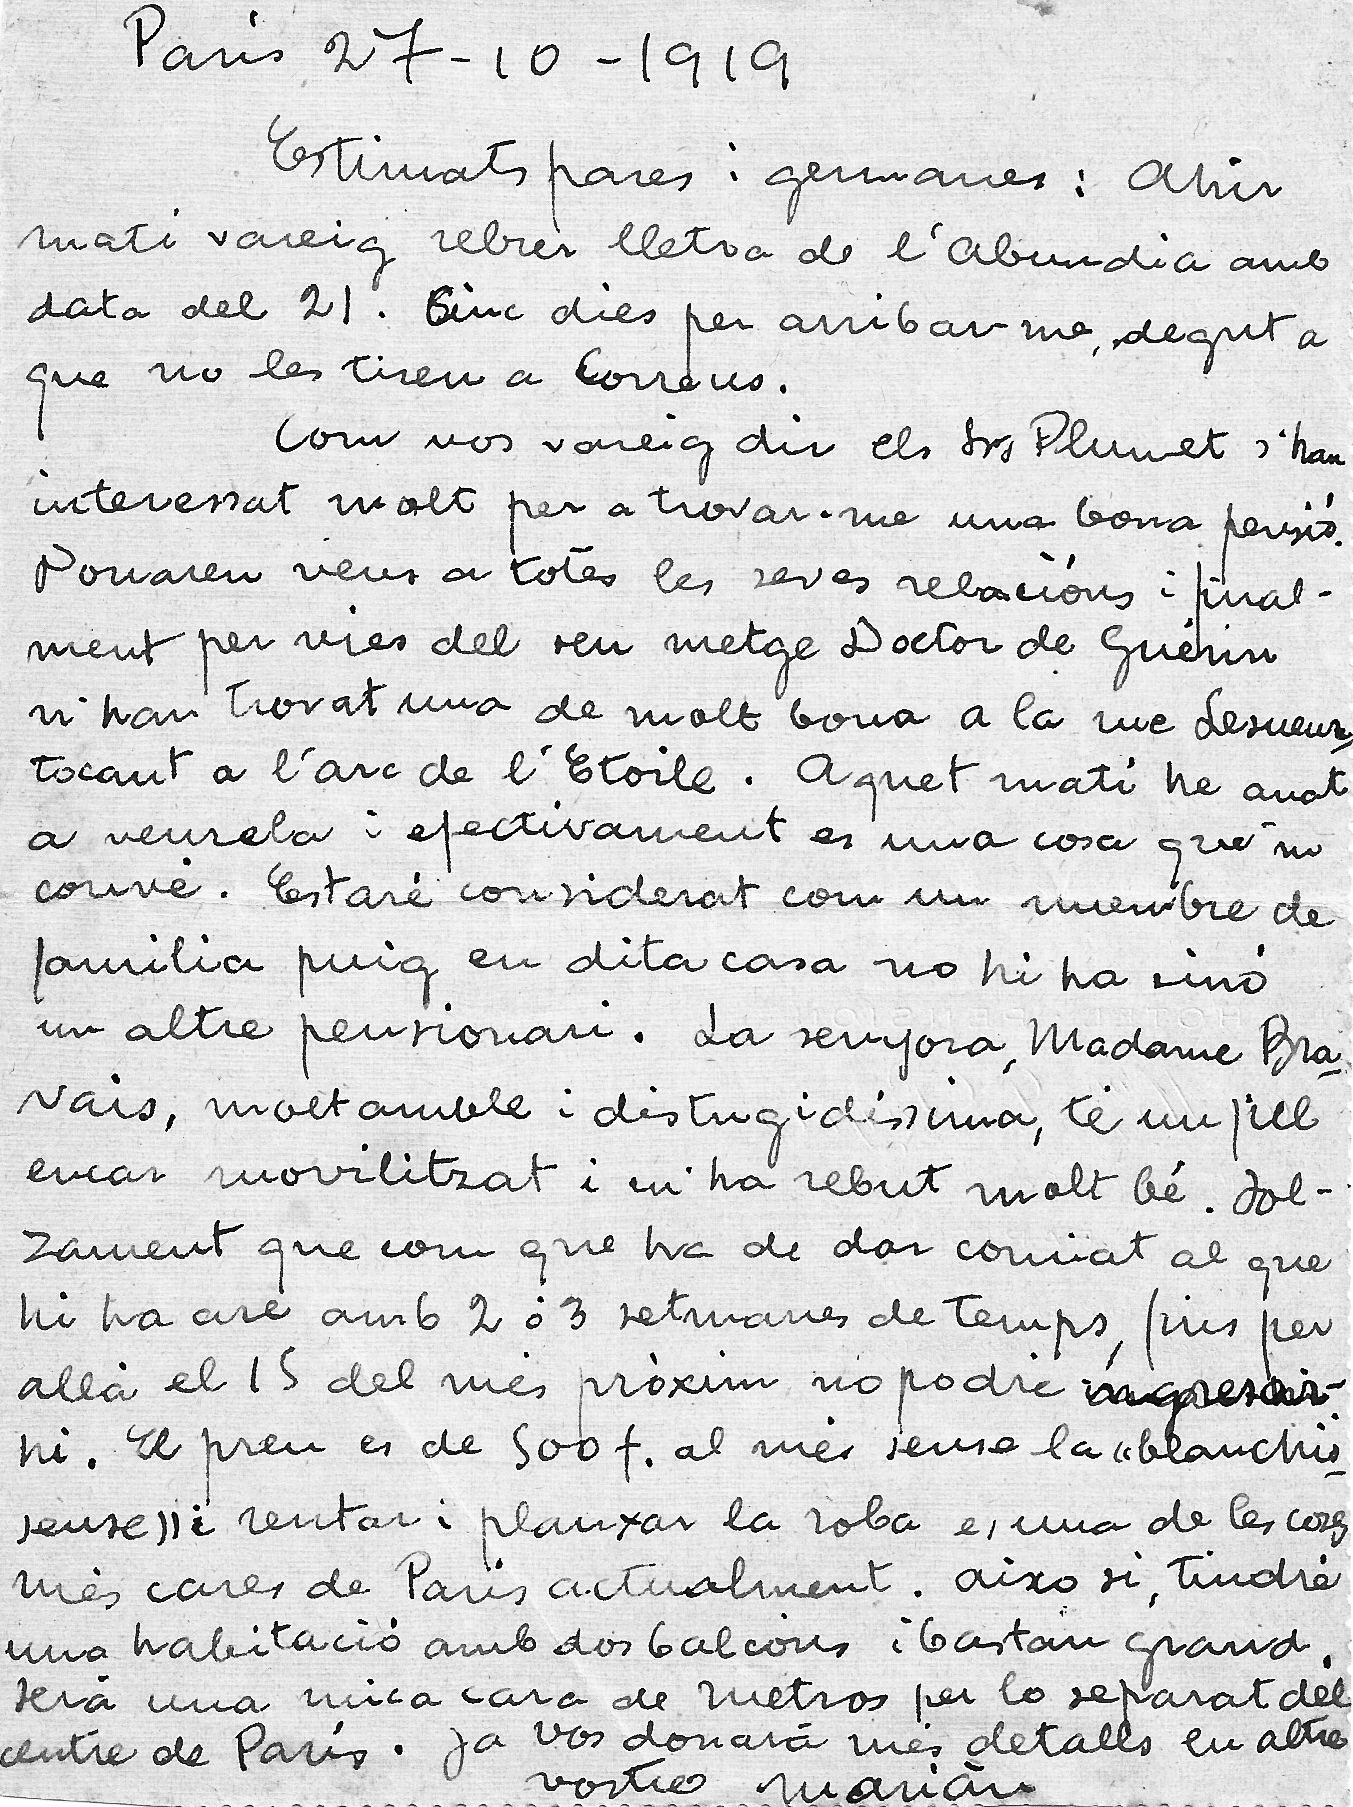 Paris 27-10-1919
Estimats pares i germanes: Ahir
mati vareig rebrer lletra de l'Abundia amb
data del 21. Cinc dies per arribar-me, degut a
que no les tireu a Correus.
Com vos vareig dir els Srs Plumet s'han
interessat molt per a trovar-me una bona pensió.
Donaren veus a totes les seves relacións i final-
ment per vies del seu metge Doctor de Guérin
m'han trovat una de molt bona a la rue Lesueur,
tocant a l'arc de l'Etoile. Aquet mati he anat
a veurela i efectivament es una cosa que'm
convé. Estaré considerat com un membre de
familia puig en dita casa no hi ha sinó
un altre pensionari. La senyora, Madame Bra-
vais, molt amble i distingidíssima, té un fill
encar movilitzat i m'ha rebut molt bé. Sol-
zament que com que ha de dar comiat al que
hi ha are amb 2 ó 3 setmanes de temps, fins per
allà el 15 del mès pròxim no podré ingresar-
hi. El preu es de 500 f. al mès sense la «blanchis-
seuse» i rentar i planxar la roba es una de les coses
mès cares de Paris actualment. Aixo si, tindré
una habitació amb dos balcons i bastan grand.
Serà una mica cara de metros per lo separat del
centre de París. Ja vos donarà mès detalls en altre
vostre Marián